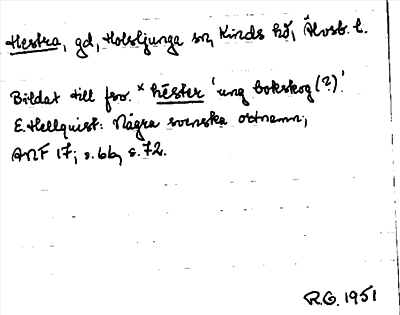 Hestra, gd, Holsljunga sn, Kinds hd, Älvsb. l.
Bildat till fsv. *hēster 'ung bokskog (?)'.
E. Hellquist: Några svenska ortnamn,
ANF 17, s. 66, s. 72.
R.G. 1951